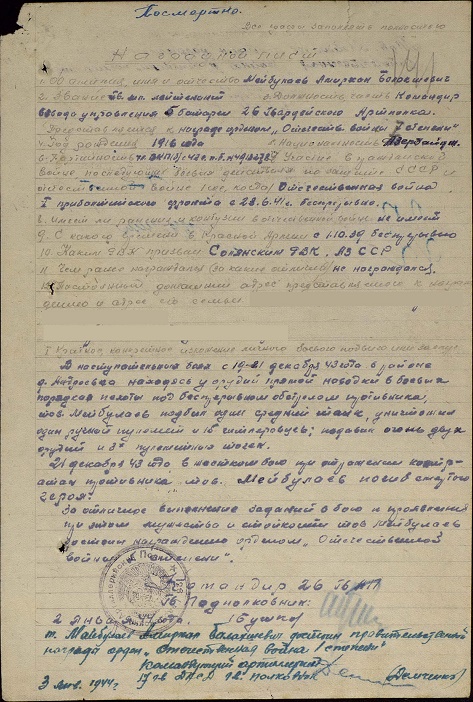 Посмертно.
Все графы заполнять полностью
Наградной лист
1. Фамилия, имя и отчество Мейбулаев Амиржан
2. Звание Гв. мл. лейтенант 3. Должность, часть Командир
взвода управления 5 батареи 26 Гвардейского Артполка.
Представляется к награде орденом „Отечеств. войны степени"
4. Год рождения 1916 года 5. Национальность Азербайдж.
6. Партийность 7. Участие в гражданской
войне последующих боевых действиях по защите СССР и
отечественной войне /где, когда/ Отечественная война
I прибалтийского фронта с 28.6.41г. беспрерывно.
8. Имеет ли ранения и контузии в отечественной войне не имеет
9. С какого времени в Красной Армии с 1.10.39 беспрерывно
10. Каким РВК призван РВК. АЗ ССР
11. Чем ранее награжден /за какие отличия/ не награждался.
12. Постоянный домашний адрес представляемого к награж-
дению и адрес его семьи
I Краткое конкретное изложение личного боевого подвига или заслуг
В наступательных боях с 19-21 декабря 43 года в районе
д. находясь у орудий прямой наводки в боевых
порядках пехоты под беспрерывным обстрелом противника,
тов. Мейбулаев подбил один средний танк, уничтожил
один ручной пулемет и 15 гитлеровцев; подавил огонь двух
орудий и 3х пулеметных точек.
21 декабря 43 года в жестоком бою при отражении контр-
атак противника тов. Мейбулаев погиб смертью
героя.
За отличное выполнение заданий в бою и проявленные
при этом мужество и стойкость тов Мейбулаев
достоин награждения орденом „Отечественной
войны степени".
Командир 26 Гв АП
Гв. Подполковник:
2 января 44 года.
т. Мейбулаев Амиржан достоин правительственной
награды орден „Отечественная война 1 степени"
Командующий артиллерией
3 янв. 1944г. гв. полковник